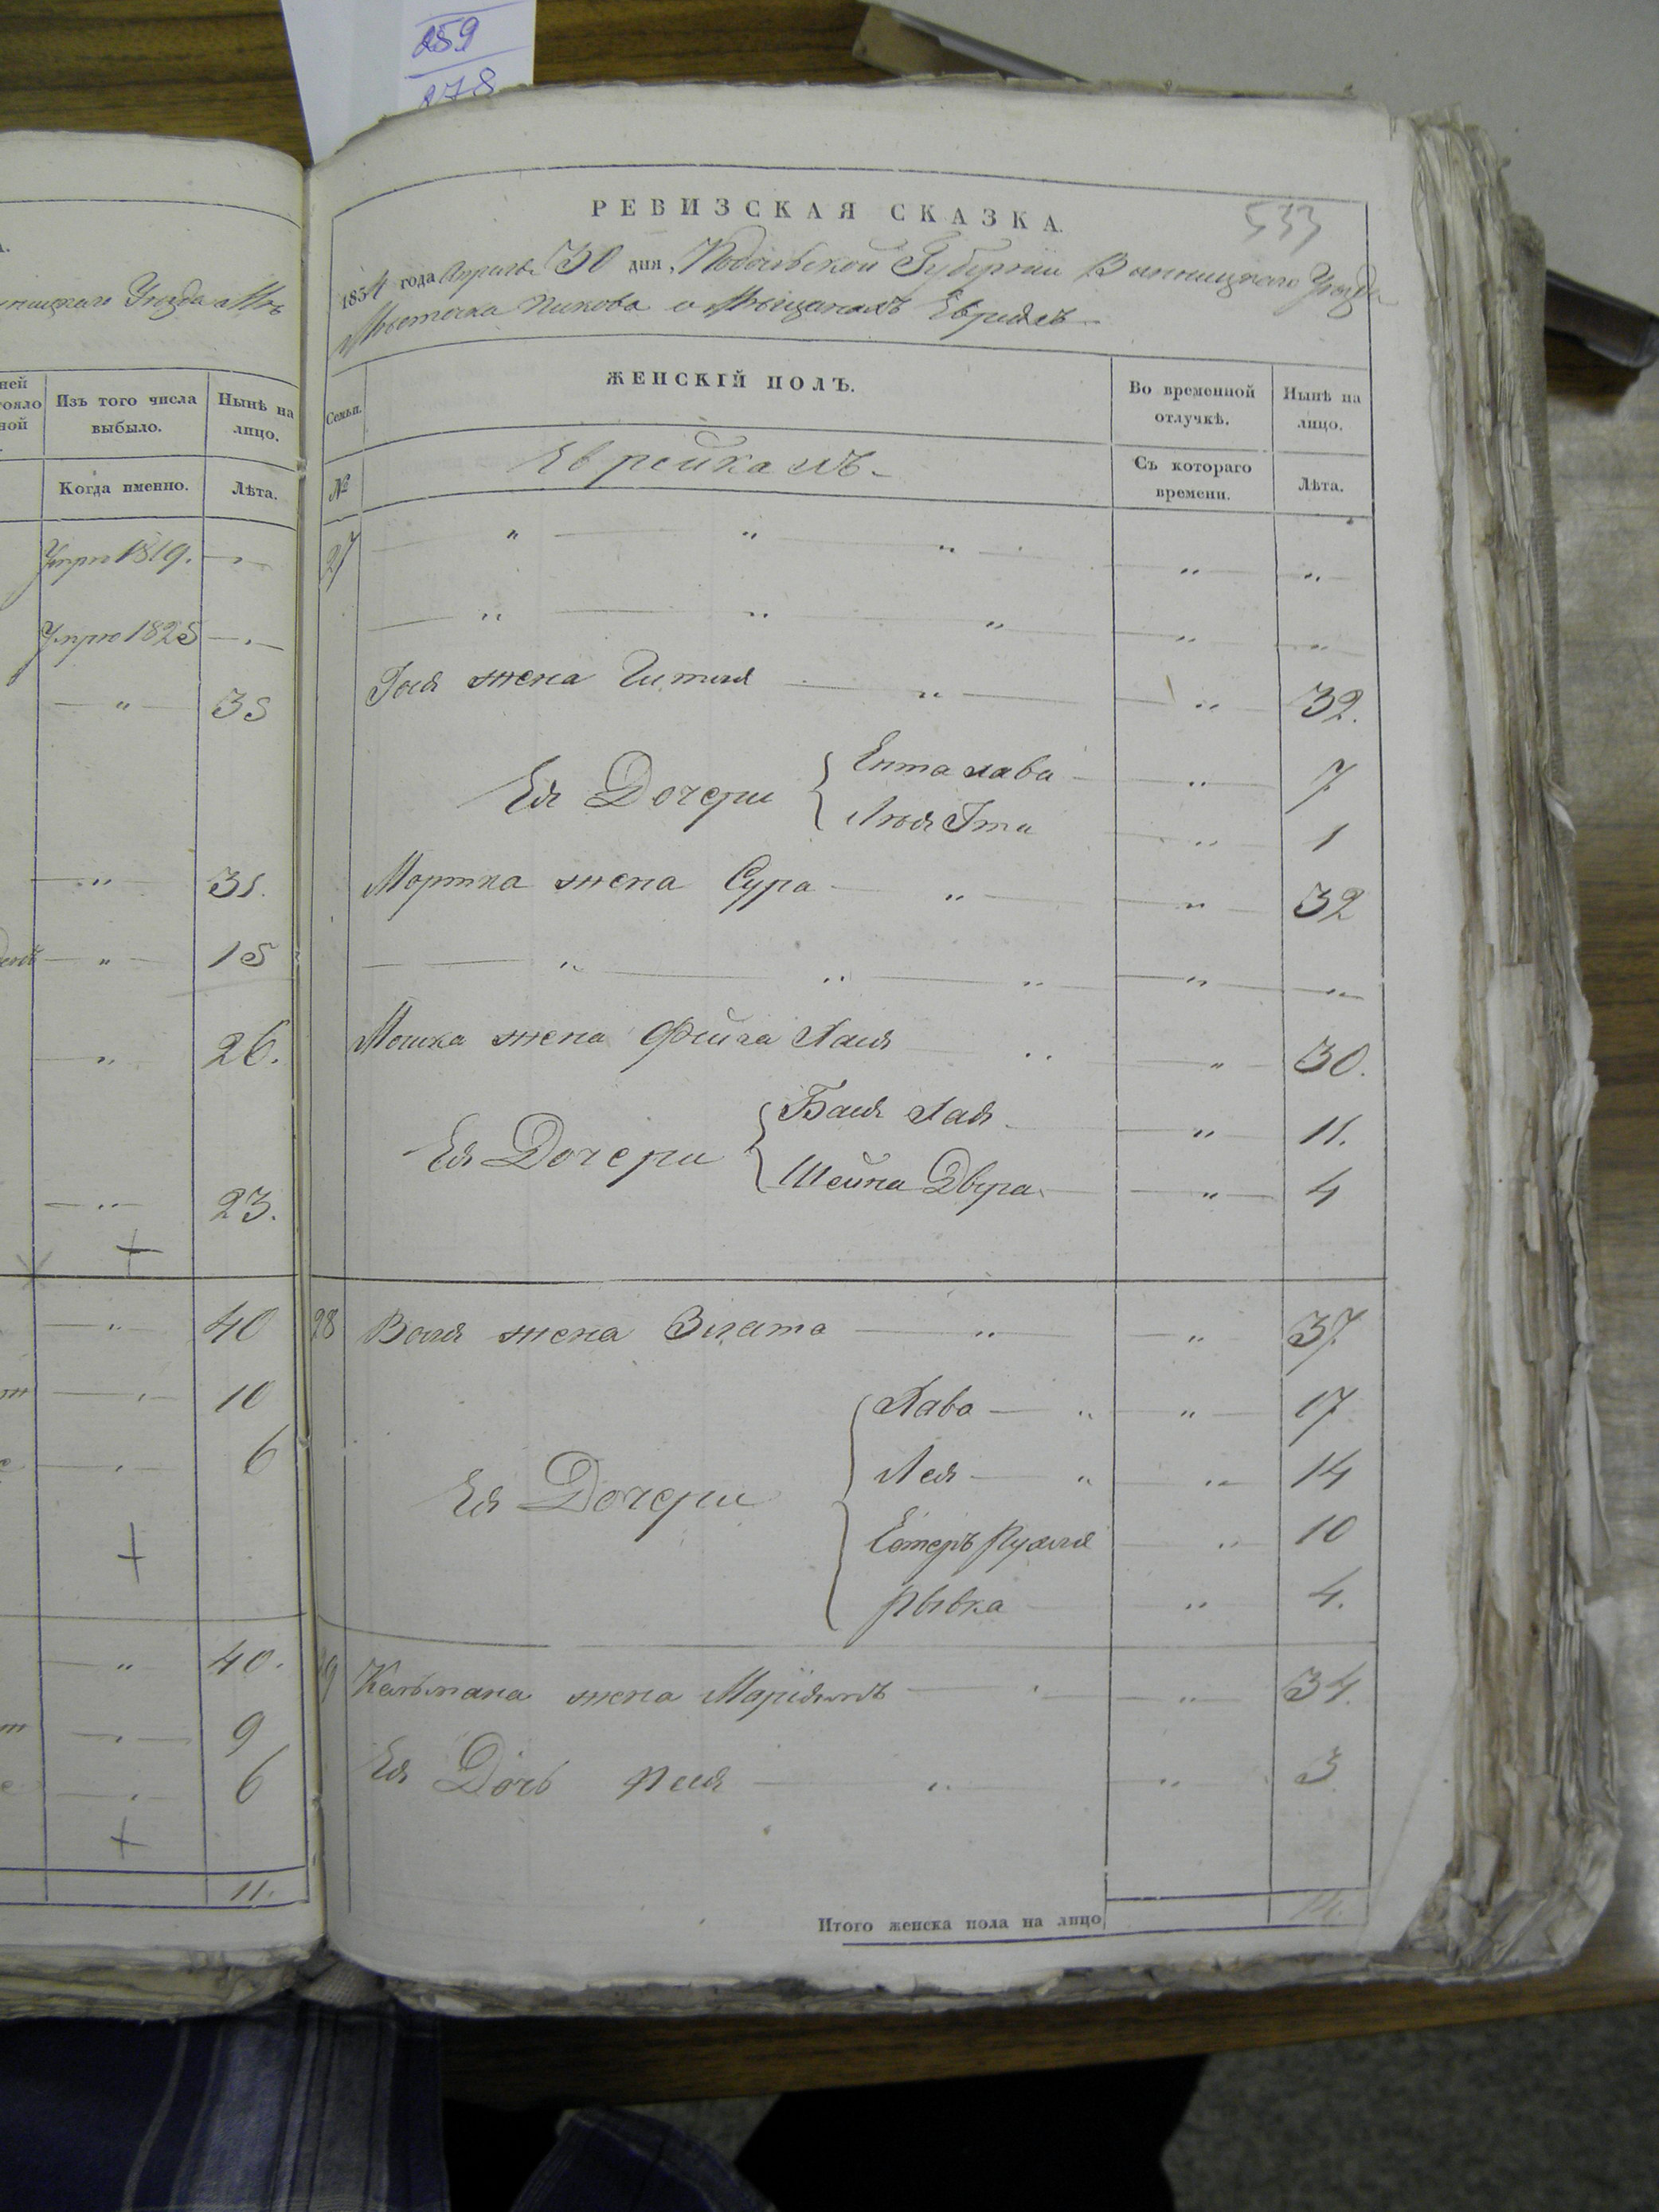 859
878
нницкаго Уѣзда Мѣ
Изъ того числа выбыло.
Ныпѣ на лицо.
Когда именно.
Лѣта.
Умри 1819.
Умрю 1825
35
31.
15
26.
23.
40
10
6
40.
9
6
11.
РЕВИЗСКАЯ СКАЗКА.
533
1854 года Апрѣля 30 дня, Подольской Губерніи Винницкаго Уѣзда
Мѣстечка Пикова о Мѣщанахъ Евреяхъ
Семьи.
ЖЕНСКІЙ ПОЛЪ.
Во временной отлучкѣ.
Нынѣ на лицо.
№
Еврейкахъ
Съ котораго времени.
Лѣта.
27
жена Гитля 32.
Ея Дочери
Ента хава 7
1
Мортка жена Сура 32
Мошка жена Фейга Хая 30.
Ея Дочери
Бася Хая 11.
Шейна Двера 4
28 Воля жена Злата 37.
Ея Дочери
Хава 17
Лея 14
Естеръ Рухля 10
Рывка 4.
29 Кельмана жена Маріямъ 34.
Ея Дочь 3
Итого женска пола на лицо 14.